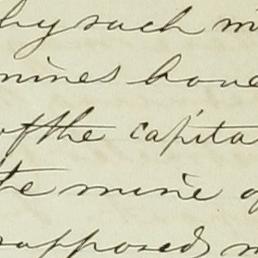 by such mi
mines have
of the capita
te mine o
supposed m